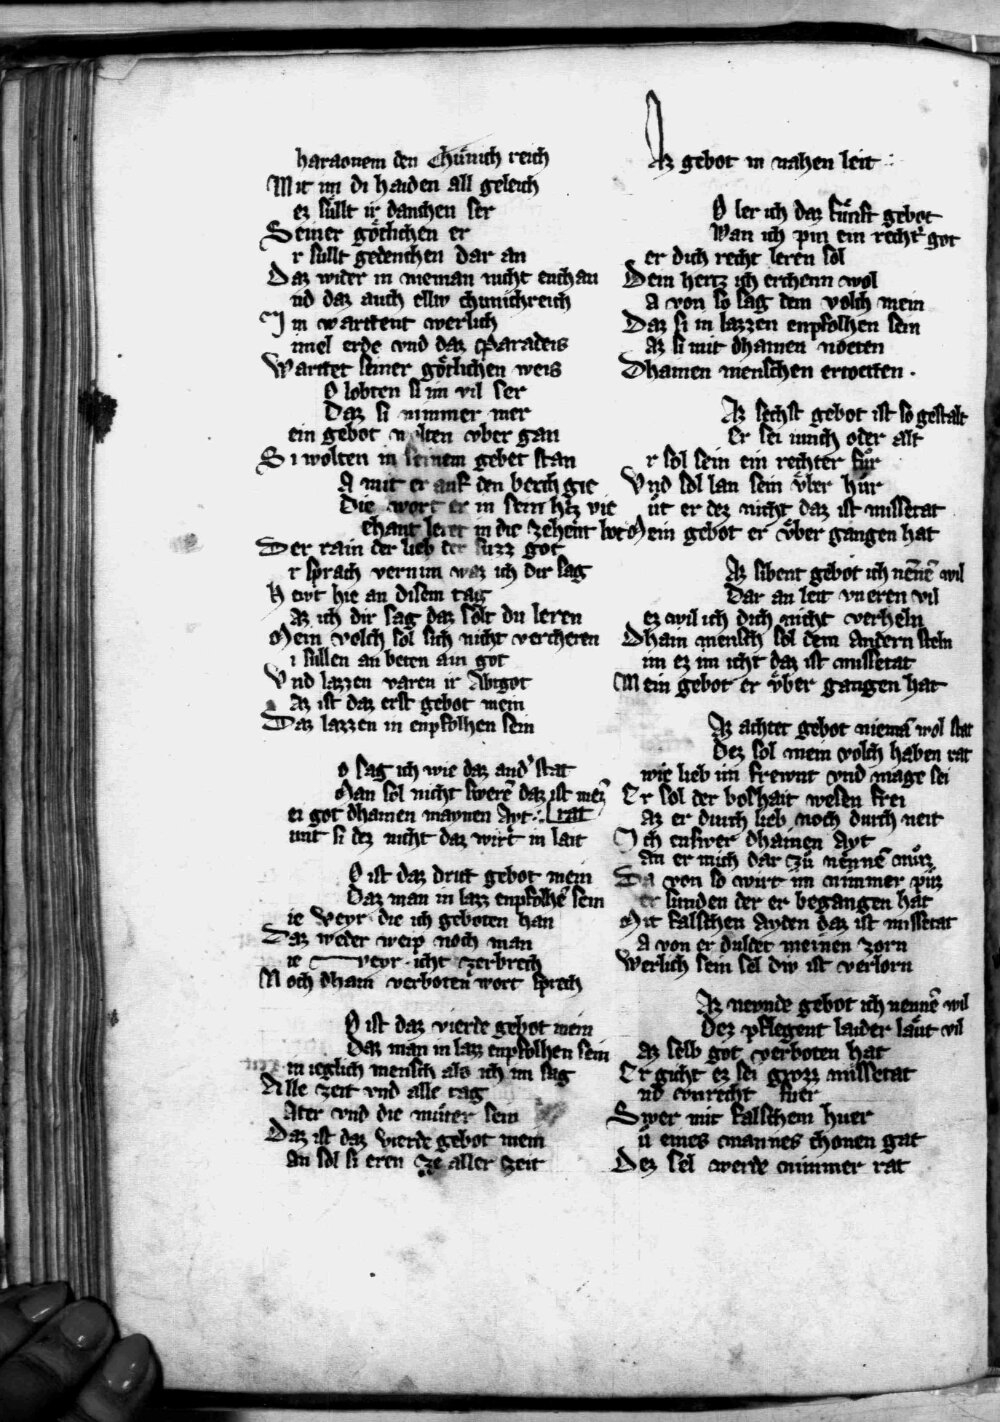 haraonem den Chünich reich
Mit im di haiden all geleich
ez süllt ir danchen ser
Seiner götlichen er
r süllt gedenchen dar an
Daz wider in nieman nicht enchan
nd daz auch elliv chunichreich
Im warttent werlich
imel erde vnd daz Paradeis
Warttet seiner götlichen weis
O lobten si im vil ser
Daz si nimmer mer
ein gebot wolten vber gan
Si wolten in seinem gebet stan
A mit er auf den berch gie
Die wort er in sein htz vie
chant leret in die zehent bot
Der rain der lieb der suzz got
r sprach vernim waz ich dir sag
Heivt hie an disem tag
az ich dir sag daz solt du leren
Mein volch sol sich nicht vercheren
i sullen an beten ain got
Vnd lazzen varen ir Abtgot
Az ist daz erst gebot mein
Daz lazzen in enpfolhen sein
o sag ich wie daz and' stat
Man sol nicht swerē daz ist mein
ei got dhainen maynen Ayt rat
unt si dez nicht daz wirt in lait
O ist daz dritt gebot mein
Daz man in lazz enpfolhē sein
ie Veyr die ich geboten han
Daz weder weip noch man
ie veyr icht zerbrech
Noch dhain verboten wort sprech
O ist daz vierde gebot mein
Daz man in lazz enpfolhen sein
in ieglich mensch als ich im sag
Alle zeit vnd alle tag
Ater vnd die muter sein
Daz ist daz vierde gebot mein
an sol si eren ze aller zeit
Az gebot in nahen leit
O ler ich daz fünft gebot
Wan ich pin ein recht' got
er dich recht leren sol
Dein hertz ich erchenn wol
A von so sag dem volch mein
Daz si in lazzen enpfolhen sein
az si mit dhainen noeten
Dhainen menschen ertoetten
Az sechst gebot ist so gestalt
Er sei iunch oder alt
r sol sein ein rechter für
Vnd sol lan sein vber hur
üt er dez nicht daz ist missetat
Mein gebot er vber gangen hat
Az sibent gebot ich nēnē wil
Dar an leit vneren vil
ez wil ich dich nicht verheln
Dhain mensch sol dem andern steln
im ez im icht daz ist missetat
Mein gebot er vber gangen hat
Az achtet gebot niemā wol stat
Dez sol mein volch haben rat
wie lieb im frewnt vnd mage sei
Er sol der boshait wesen frei
az er durch lieb noch durch neit
Ich enswer dhainen Ayt
an er mich dar zu nennē muz
Da von so wirt im nimmer püz
er sunden der er begangen hat
Mit falschen ayden daz ist missetat
A von er duldet meinen zorn
Werlich sein sel div ist verlorn
Az neynde gebot ich nennē wil
Dez pflegent laider läut vil
az selb got verboten hat
Er gicht ez sei grozz missetat
nd vnrecht fuer
Swer mit falschem huer
ü eines mannes chonen gat
Dez sel werde nimmer rat